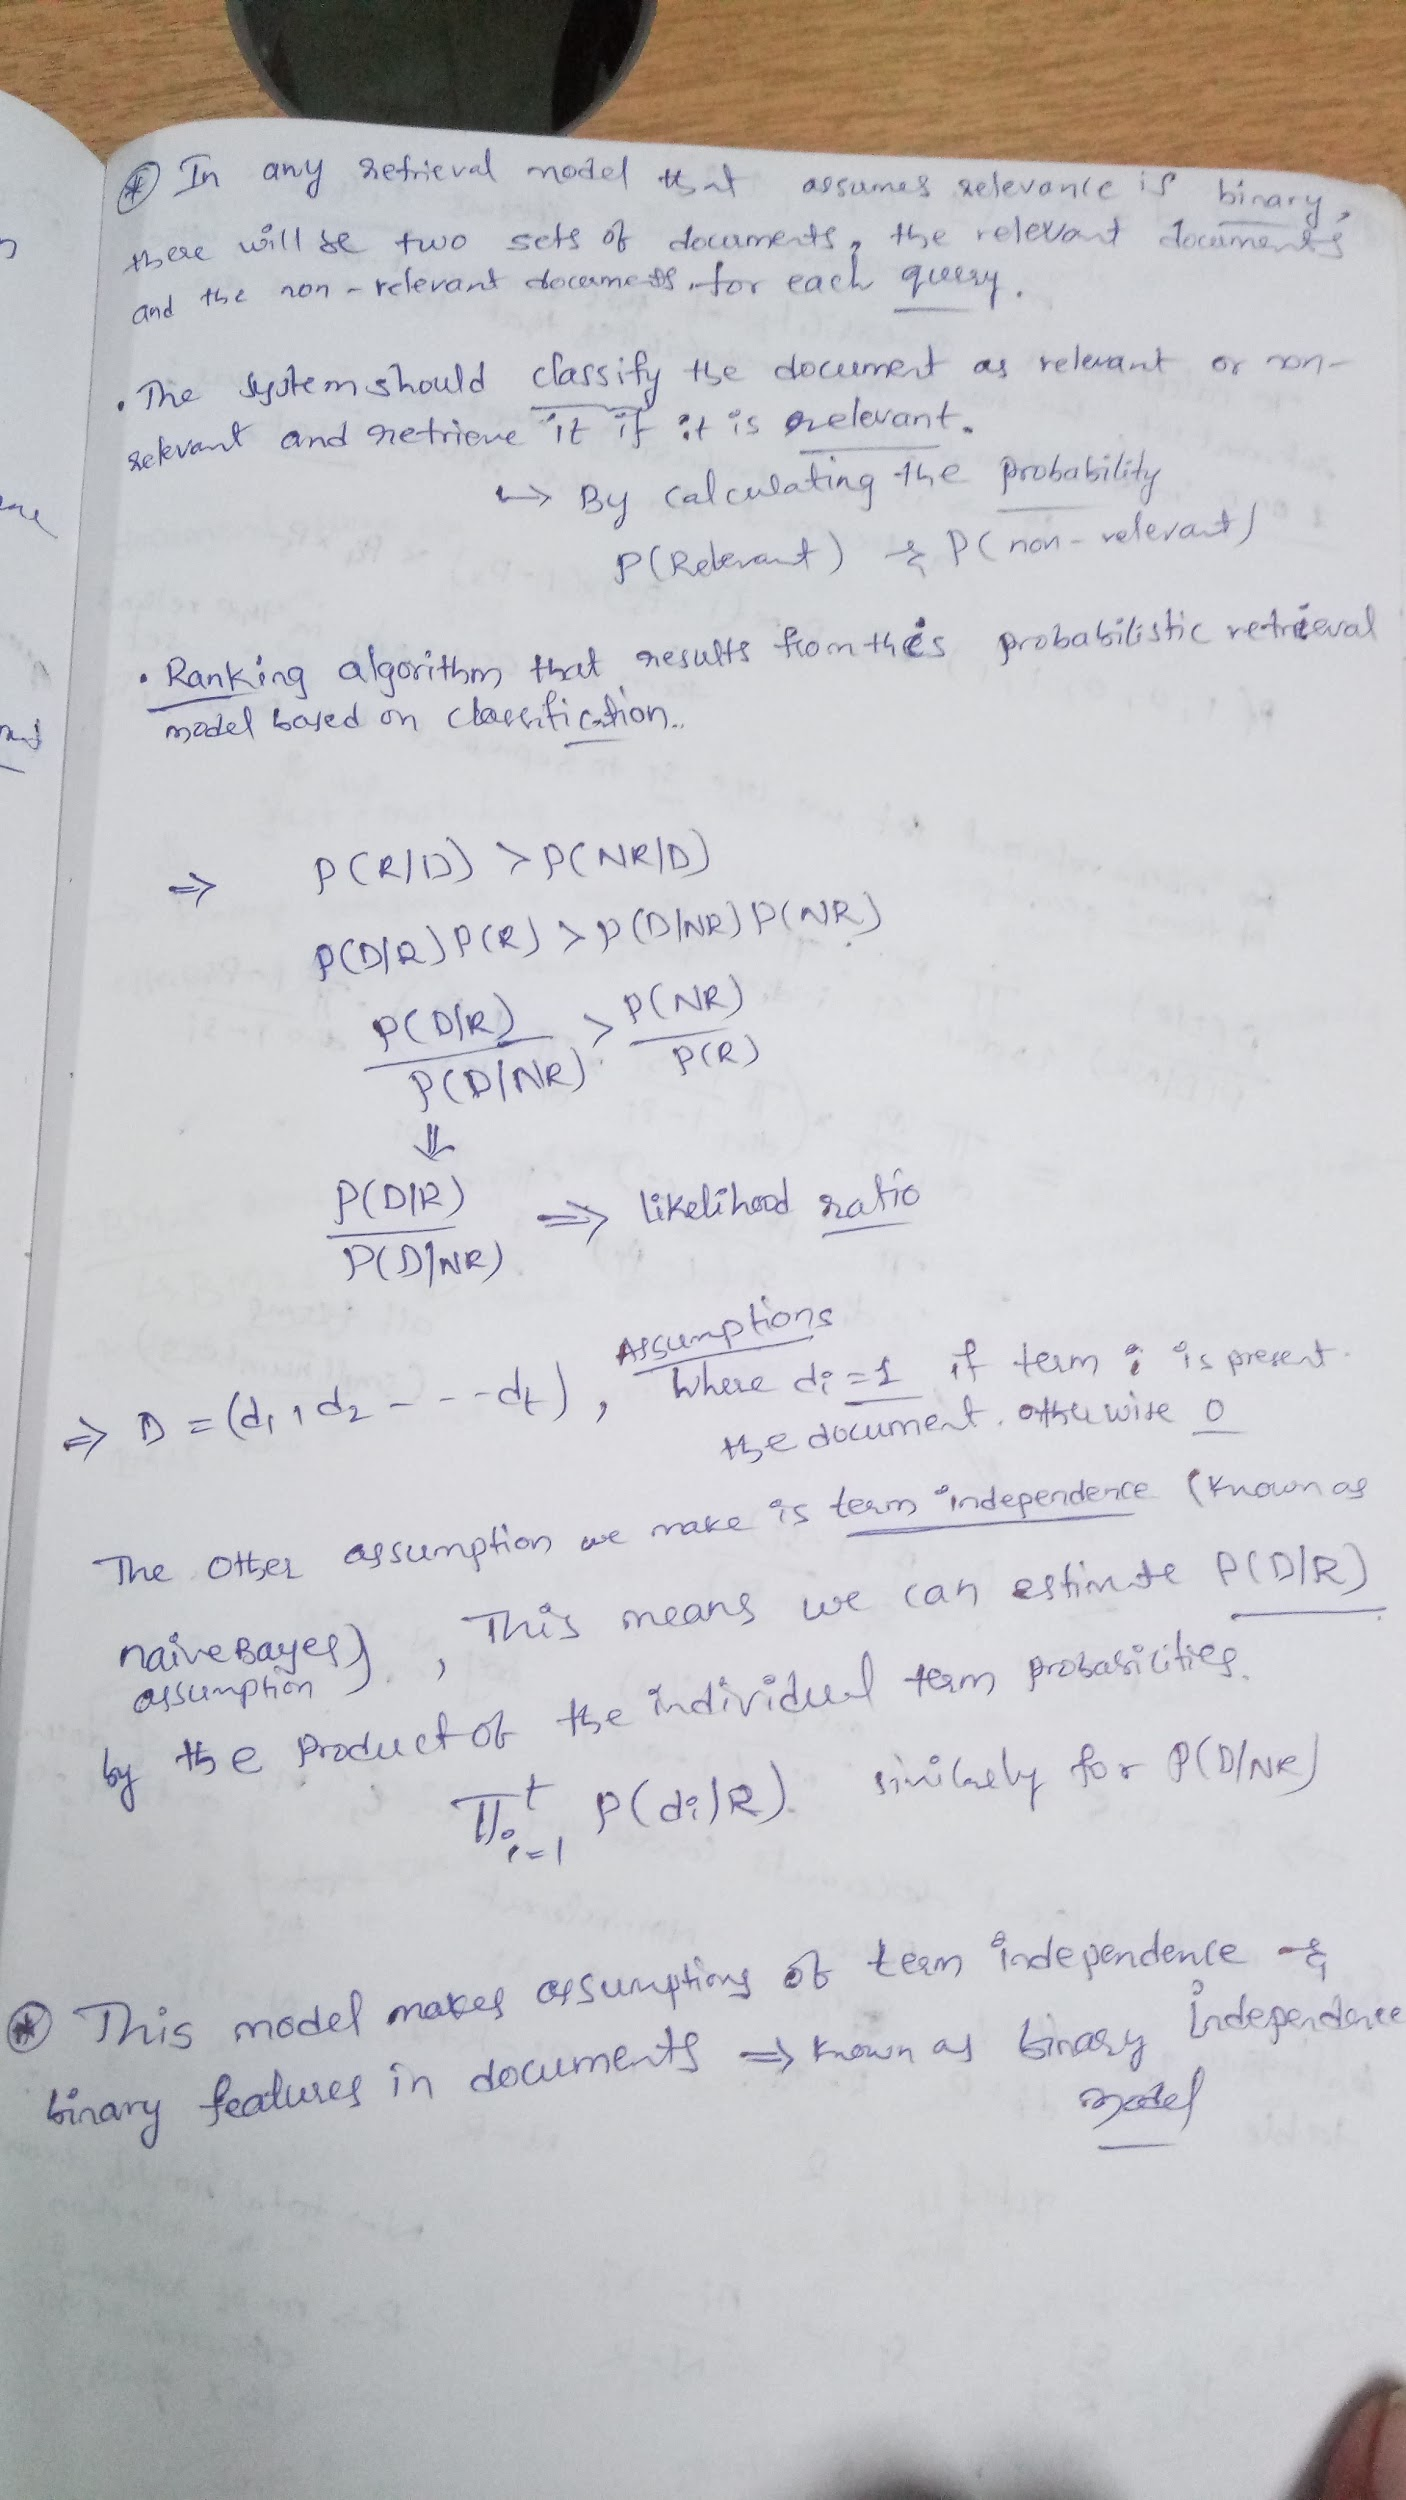 ⊛ In any retrieval model that assumes relevance is binary,
there will be two sets of documents, the relevant documents
and the non-relevant documents, for each query.
• The system should classify the document as relevant or non-
relevant and retrieve it if it is relevant.
↳ By calculating the probability
P(Relevant) & P(non-relevant)
• Ranking algorithm that results from this probabilistic retrieval
model based on classification.
⇒ P(R/D) > P(NR/D)
P(D/R) P(R) > P(D/NR) P(NR)
P(D/R) / P(D/NR) > P(NR) / P(R)
⇓
P(D/R) / P(D/NR) ⇒ likelihood ratio
Assumptions
⇒ D = (d1, d2 - - - dt), Where di = 1 if term i is present.
the document. otherwise 0
The other assumption we make is term independence (known as
naive Bayes assumption), This means we can estimate P(D/R)
by the product of the individual term probabilities.
∏ᵗi=1 P(di/R). similarly for P(D/NR)
⊛ This model makes assumptions of term independence &
binary features in documents ⇒ known as binary independence
model